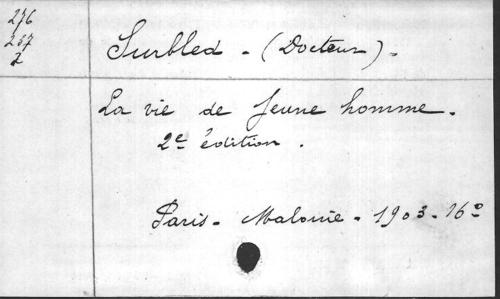 276
237
2
Surbled - (Docteur) -
La vie de Jeune homme.
2e édition.
Paris - Maloine - 1903 - 16º